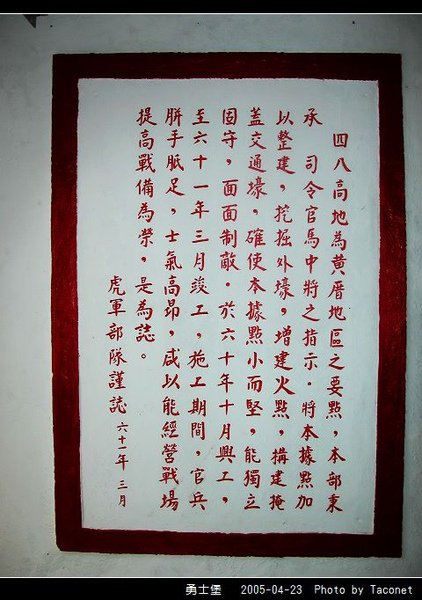 四八高地為黃厝地區之要點,本部秉
承 司令官馬中將之指示.將本據點加
以整建,挖掘外壕,增建火點,構建掩
蓋交通壕,確使本據點小而堅,能獨立
固守,面面制敵.於六十年十月興工,
至六十一年三月竣工,施工期間,官兵
胼手胝足,士氣高昂,咸以能經營戰場
提高戰備為榮,是為誌。
虎軍部隊謹誌 六十一年 三月
勇士堡 2005-04-23 Photo by Taconet